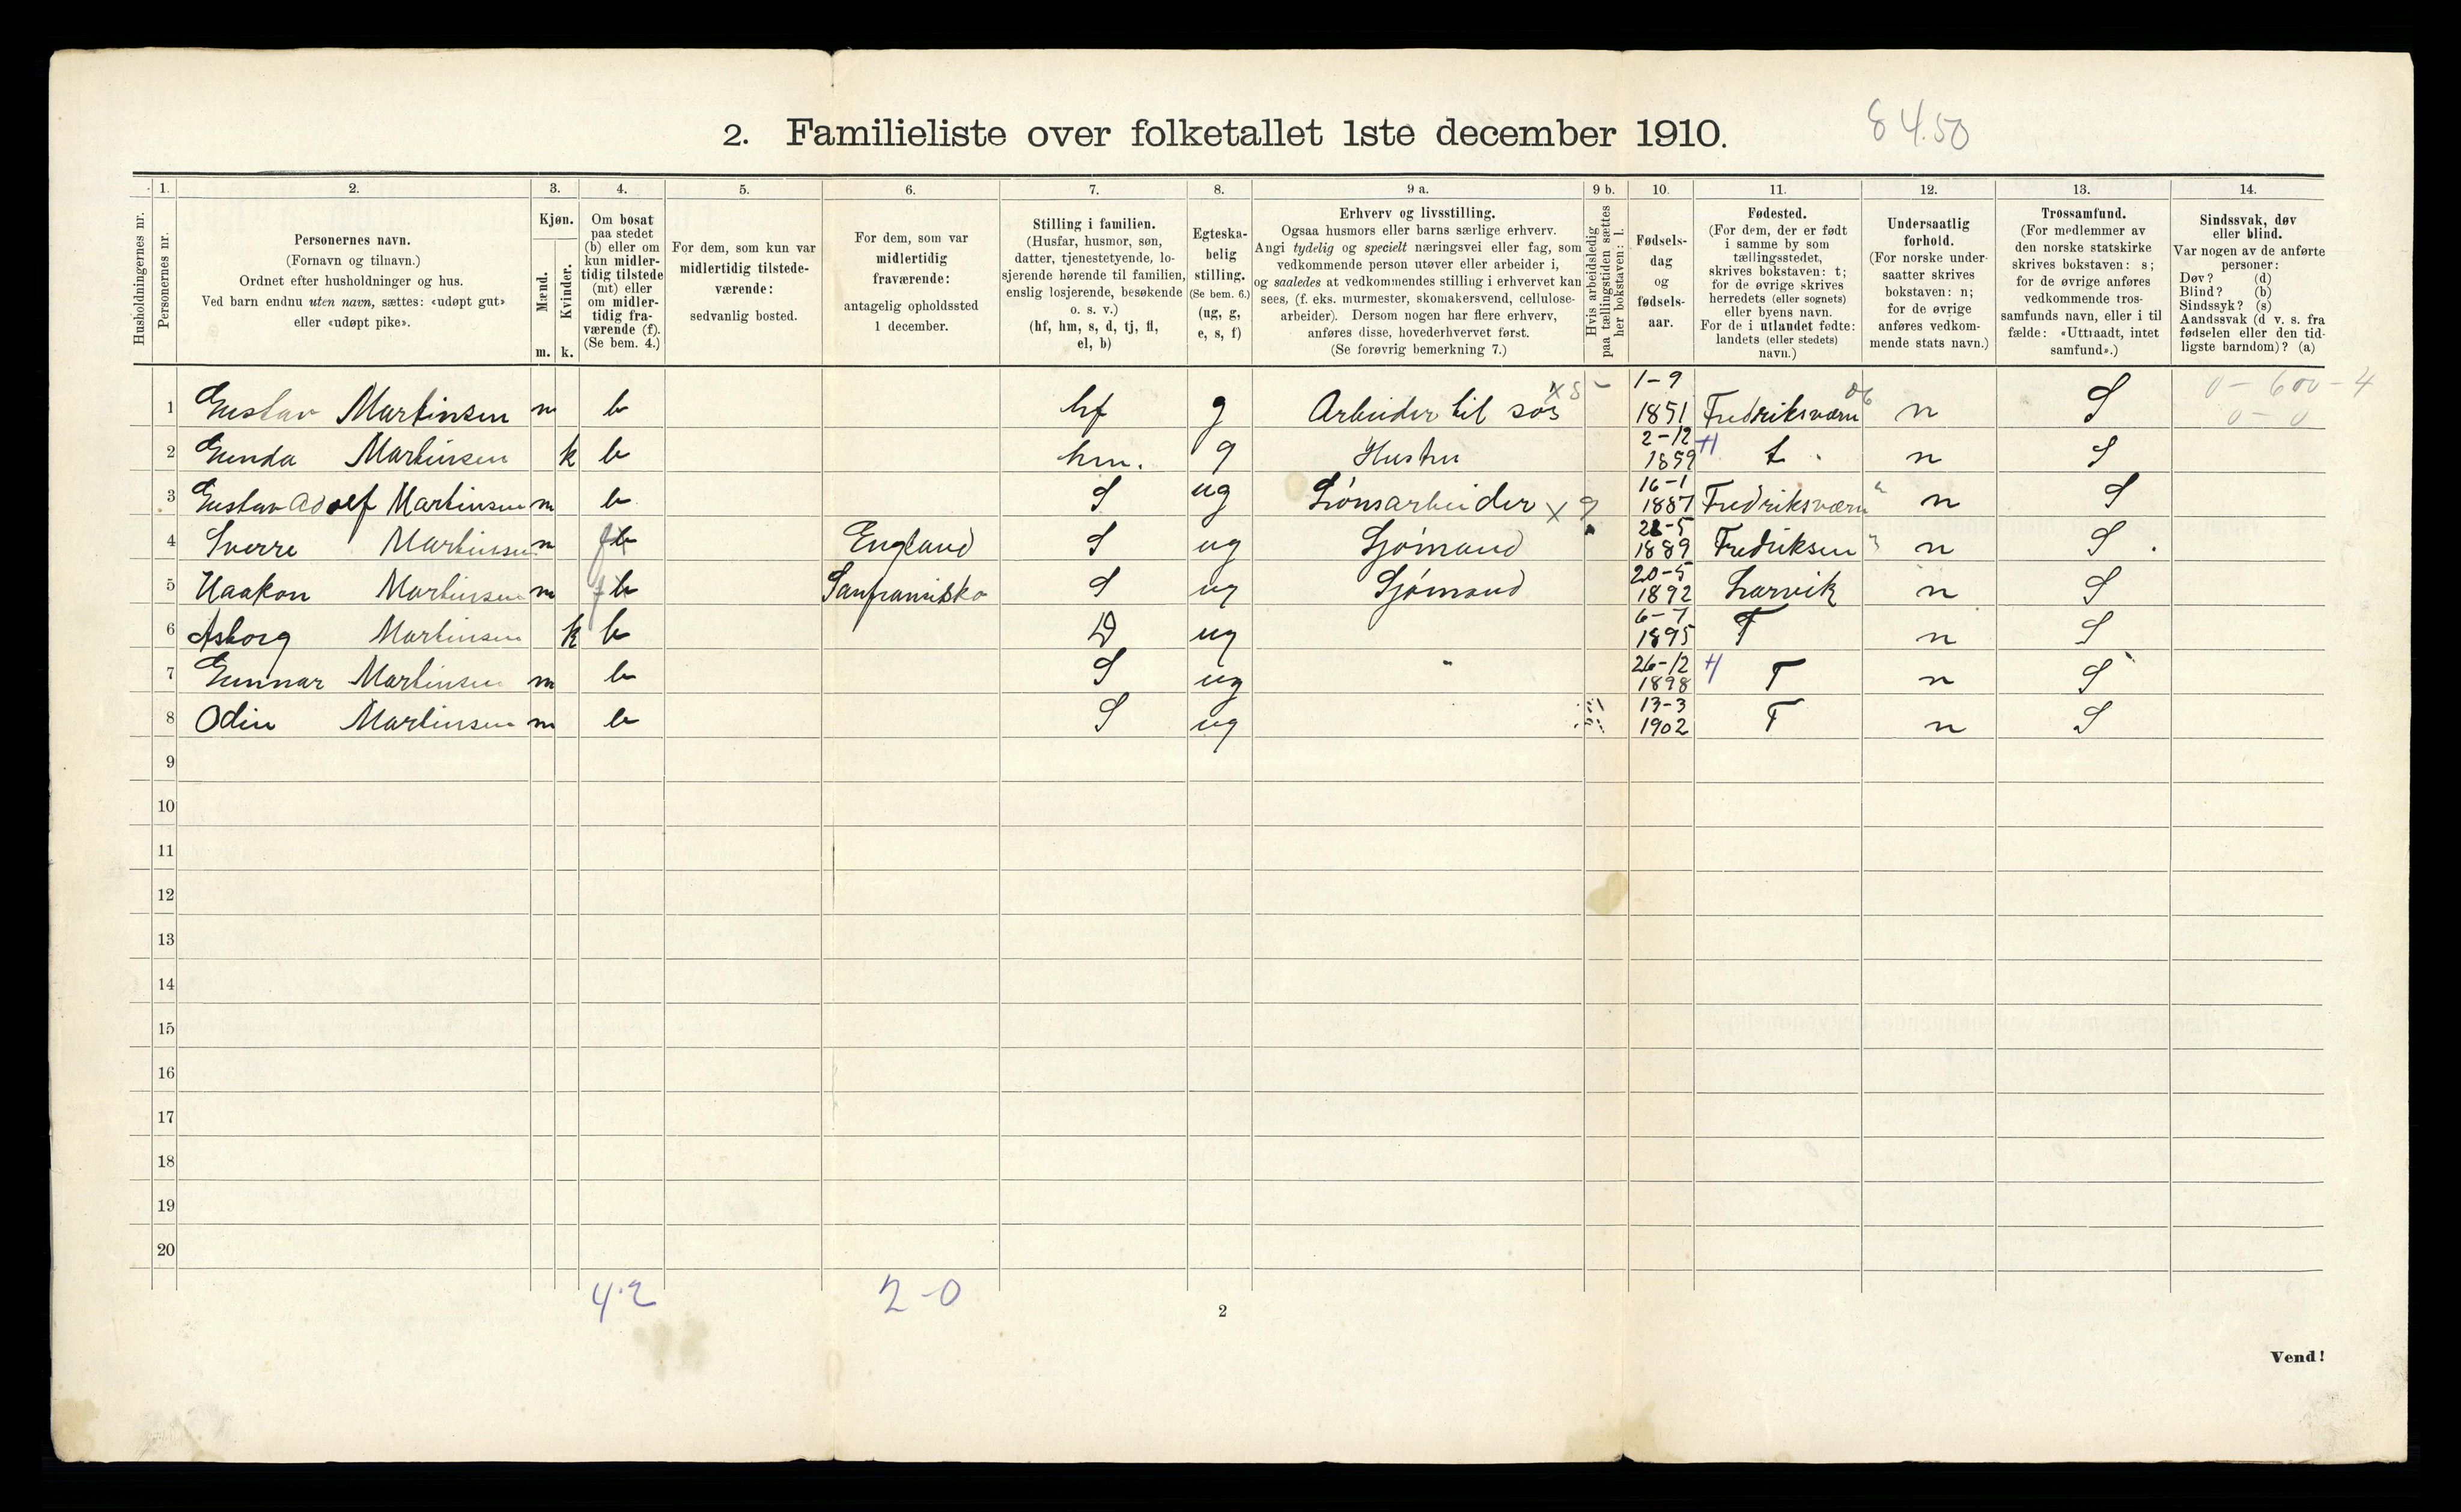 2. Familieliste over folketallet 1ste december 1910.
84.50
Husholdningernes nr.
1.
Personernes nr.
2.
Personernes navn.
(Fornavn og tilnavn.)
Ordnet efter husholdninger og hus.
Ved barn endnu uten navn, sættes: «udøpt gut»
eller «udøpt pike».
3.
Kjøn.
Mænd.
Kvinder.
m. k.
4.
Om bosat
paa stedet
(b) eller om
kun midler-
tidig tilstede
(mt) eller
om midler-
tidig fra-
værende (f).
(Se bem. 4.)
5.
For dem, som kun var
midlertidig tilstede-
værende:
sedvanlig bosted.
6.
For dem, som var
midlertidig
fraværende:
antagelig opholdssted
1 december.
7.
Stilling i familien.
(Husfar, husmor, søn,
datter, tjenestetyende, lo-
sjerende hørende til familien,
enslig losjerende, besøkende
o. s. v.)
(hf, hm, s, d, tj, fl,
el, b)
8.
Egteska-
belig
stilling.
(Se bem. 6.)
(ug, g,
e, s, f)
9 a.
Erhverv og livsstilling.
Ogsaa husmors eller barns særlige erhverv.
Angi tydelig og specielt næringsvei eller fag, som
vedkommende person utøver eller arbeider i,
og saaledes at vedkommendes stilling i erhvervet kan
sees, (f. eks. murmester, skomakersvend, cellulose-
arbeider). Dersom nogen har flere erhverv,
anføres disse, hovederhvervet først.
(Se forøvrig bemerkning 7.)
9 b.
Hvis arbeidsledig
paa tællingstiden sættes
her bokstaven: l.
10.
Fødsels-
dag
og
fødsels-
aar.
11.
Fødested.
(For dem, der er født
i samme by som
tællingsstedet,
skrives bokstaven: t;
for de øvrige skrives
herredets (eller sognets)
eller byens navn.
For de i utlandet fødte:
landets (eller stedets)
navn.)
12.
Undersaatlig
forhold.
(For norske under-
saatter skrives
bokstaven: n;
for de øvrige
anføres vedkom-
mende stats navn.)
13.
Trossamfund.
(For medlemmer av
den norske statskirke
skrives bokstaven: s;
for de øvrige anføres
vedkommende tros-
samfunds navn, eller i til
fælde: «Uttraadt, intet
samfund».)
14.
Sindssvak, døv
eller blind.
Var nogen av de anførte
personer:
Døv? (d)
Blind? (b)
Sindssyk? (s)
Aandssvak (d v. s. fra
fødselen eller den tid-
ligste barndom)? (a)
1 Gustav Martinsen m b hf g Arbeider til søs x8 - 1-9 1851 Fredriksværn n S 0-600-4 0-0
2 Gunda Martinsen k b hm. g Hustru 2-12 1859 t n S
3 Gustav Adolf Martinsen m b S ug Lønsarbeider x 9 16-1 1887 Fredriksværn n S
4 Sverre Martinsen m f b England S ug Sjømand 1889 Fredriksen n S
5 Haakon Martinsen m f b Sanfransisko S ug Sjømand 20-5 1892 Larvik n S
6 Asborg Martinsen k b D ug 6-7 1895 T n S
7 Gunnar Martinsen m b S ug 26-12 1898 T n S
8 Odin Martinsen m b S ug 13-3 1902 T n S
9
10
11
12
13
14
15
16
17
18
19
20
4-2 2-0
2
Vend!